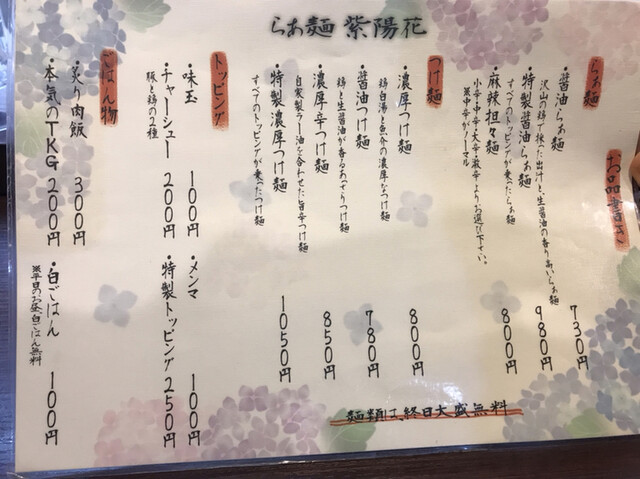 らぁ麺 紫陽花
お品書き
らぁ麺
・醤油らぁ麺 730円
沢山の鶏で採った出汁と、生醤油の香り高いらぁ麺
・特製醤油らぁ麺 980円
すべてのトッピングが乗ったらぁ麺
・麻辣担々麺 800円
小辛・中辛・大辛・激辛よりお選び下さい。
※中辛がノーマル
つけ麺
・濃厚つけ麺 800円
鶏白湯と魚介の濃厚なつけ麺
・醤油つけ麺 780円
鶏と生醤油が香るあっさりつけ麺
・濃厚辛つけ麺 850円
自家製ラー油を合わせた旨辛つけ麺
・特製濃厚つけ麺 1050円
すべてのトッピングが乗ったつけ麺
麺類は、終日大盛無料
トッピング
・味玉 100円
・メンマ 100円
・チャーシュー 200円
豚と鶏の2種
・特製トッピング 250円
ごはん物
・炙り肉飯 300円
・本気のTKG 200円
・白ごはん 100円
※平日のお昼、白ごはん無料